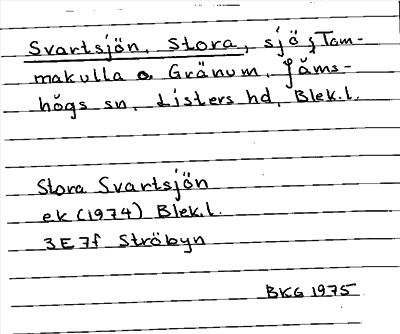 Svartsjön, Stora, sjö, Tom-
makulla o Gränum, Jäms-
högs sn, Listers hd, Blek.l.
Stora Svartsjön
ek (1974) Blek.l.
3E7f Ströbyn
BKG 1975